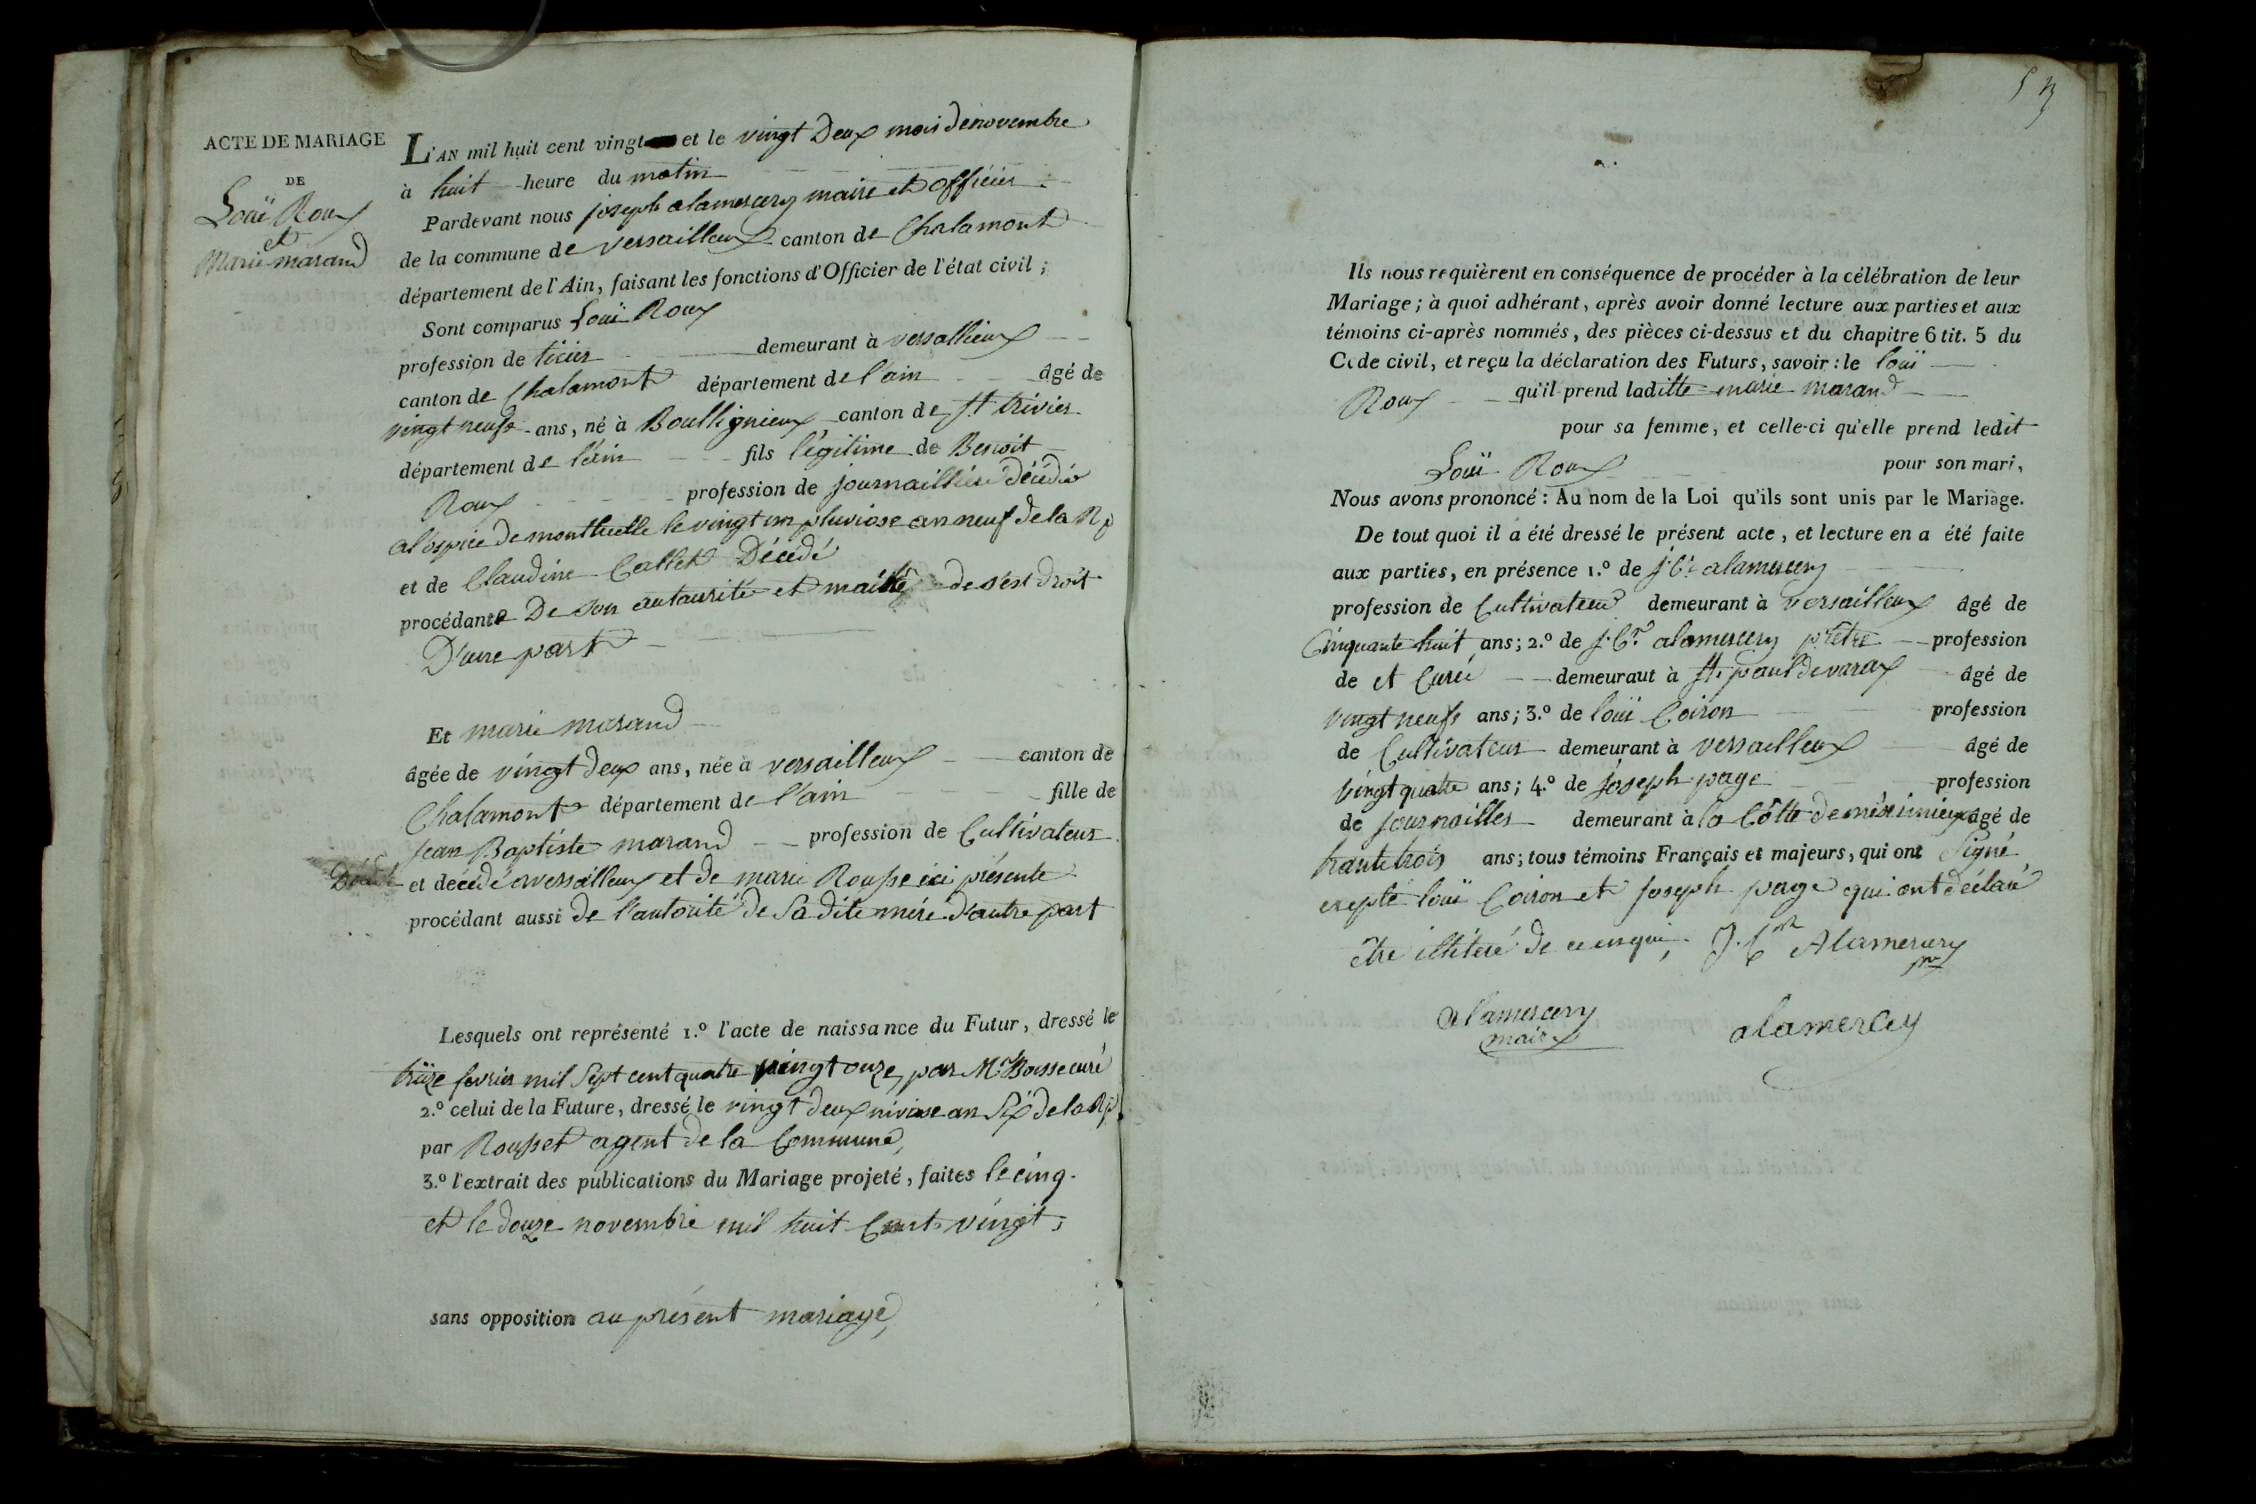 ACTE DE MARIAGE
DE
Louï Roux
et
Marie marand
L'AN mil huit cent vingt et le vingt Deux mois de novembre
à huit heure du matin
Pardevant nous joseph alamercery maire et officier
de la commune de versailleux canton de Chalamont
département de l'Ain, faisant les fonctions d'Officier de l'état civil ;
Sont comparus Louï Roux
profession de ticier demeurant à versallieux
canton de Chalamont département de l'ain âgé de
vingt neufs ans, né à Boullignieux canton de St trivier
département de l'ain fils légitime de Benoit
Roux profession de journaillié décédé
alospice de montluelle le vingt un pluviose an neuf de la Rp
et de Claudine Collet Décédé
procédant De son autaurité et maitre de s'est droit
D'une part
Et marie marand
âgée de vingt deux ans, née à versailleux canton de
Chalamont département de l'ain fille de
jean Baptiste marand profession de Cultivateur
Décédé et décédé a versailleux et de marie Rousse ici présente
procédant aussi de l'autorité de sa dite méré d'autre part
Lesquels ont représenté 1.º l'acte de naissance du Futur, dressé le
trëize fevrier mil sept cent quatre vingt onze par Mr Bosse curé
2.º celui de la Future, dressé le vingt deux nivose an six de la Rp
par Rousset agent de la Commune,
3.º l'extrait des publications du Mariage projeté, faites le cinq
et le douze novembre mil huit Cent vingt ;
sans opposition au présent mariage,
53
Ils nous requièrent en conséquence de procéder à la célébration de leur
Mariage ; à quoi adhérant, après avoir donné lecture aux parties et aux
témoins ci-après nommés, des pièces ci-dessus et du chapitre 6 tit. 5 du
Code civil, et reçu la déclaration des Futurs, savoir : le louï
Roux qu'il prend laditte marie marand
pour sa femme, et celle-ci qu'elle prend ledit
Louï Roux pour son mari,
Nous avons prononcé : Au nom de la Loi qu'ils sont unis par le Mariage.
De tout quoi il a été dressé le présent acte, et lecture en a été faite
aux parties, en présence 1.º de j. Cr alamercery
profession de Cultivateur demeurant à versailleux âgé de
Cinquante huit ans ; 2.º de j. Cr alamercery prêtre profession
de et Curé demeuraut à St paul de varax âgé de
vingt neufs ans ; 3.º de louï Coiron profession
de Cultivateur demeurant à versailleux âgé de
vingt quatre ans ; 4.º de joseph page profession
de journailles demeurant à la Côtte de mérimieux âgé de
trante trois ans ; tous témoins Français et majeurs, qui ont signé
exepté louï Coiron et joseph page qui ont déclaré
être illiteré de ce enqui, J. Cr Alamercery
pre
alamercery
maire
alamercey